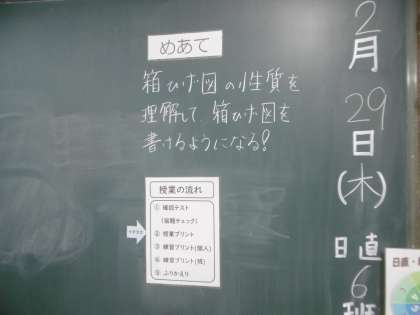 めあて
箱ひげ図の性質を
理解して、箱ひげ図を
書けるようになる!
授業の流れ
① 確認テスト
(宿題チェック)
② 授業プリント
③ 練習プリント(個人)
④ 練習プリント(班)
⑤ ふりかえり
2月29日(木)
日直6班